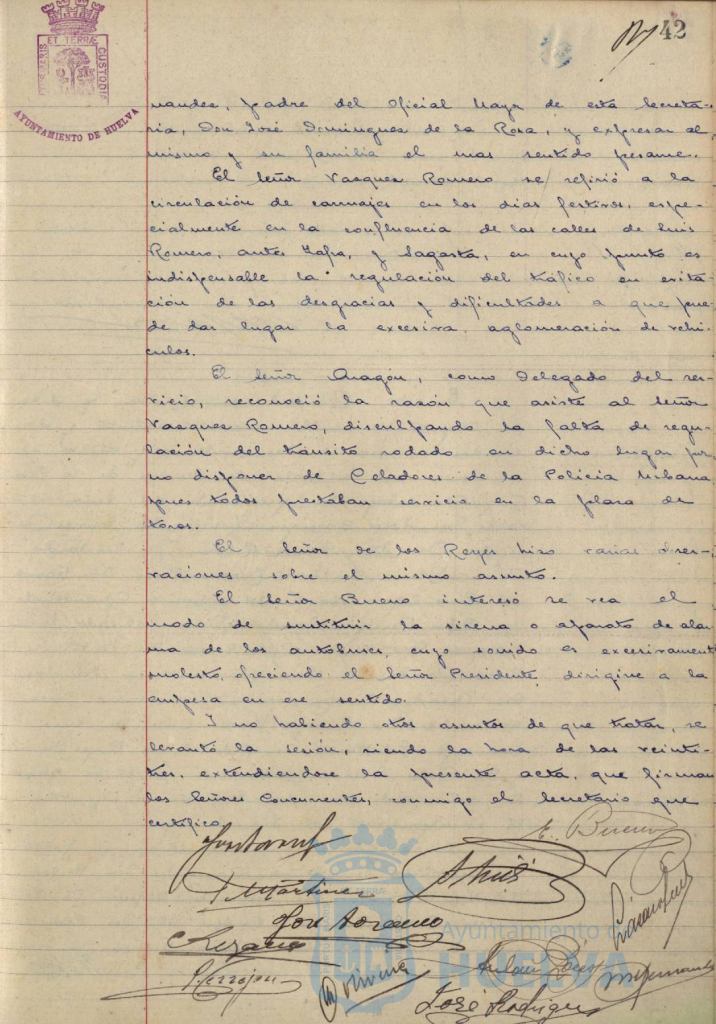 42
ET TERRÆ
CUSTODIA
AYUNTAMIENTO DE HUELVA
nandez, padre del Oficial Mayor de esta Secreta-
ria, Don José Dominguez de la Rosa, y expresar al
mismo y su familia el mas sentido pesame.
El Señor Vazquez Romero se refirió a la
circulación de carruajes en los dias festivos, espe-
cialmente en la confluencia de las calles de Luis
Romero, antes Zafra, y Sagasta, en cuyo punto es
indispensable la regulación del tráfico en evita-
ción de las desgracias y dificultades a que pue-
de dar lugar la excesiva aglomeración de vehi-
culos.
El Señor Aragón, como Delegado del ser-
vicio, reconoció la razón que asiste al Señor
Vazquez Romero, disculpando la falta de regu-
lación del tránsito rodado en dicho lugar por
no disponer de Celadores de la Policia Urbana
pues todos prestaban servicio en la plaza de
toros.
El Señor de los Reyes hizo varias obser-
vaciones sobre el mismo asunto.
El Señor Bueno interesó se vea el
modo de sustituir la sirena o aparato de alar-
ma de los autobuses, cuyo sonido es excesivament
molesto, ofreciendo el Señor Presidente dirigirse a la
empesa en ese sentido.
Y no habiendo otros asuntos de que tratar, se
levantó la sesión, siendo la hora de las veinti-
tres, extendiendose la presente acta, que firman
los Señores Concurrentes, conmigo el Secretario que
certifico.
E. Bueno
Martinez
José
Ayuntamiento de
HUELVA
José Rodriguez